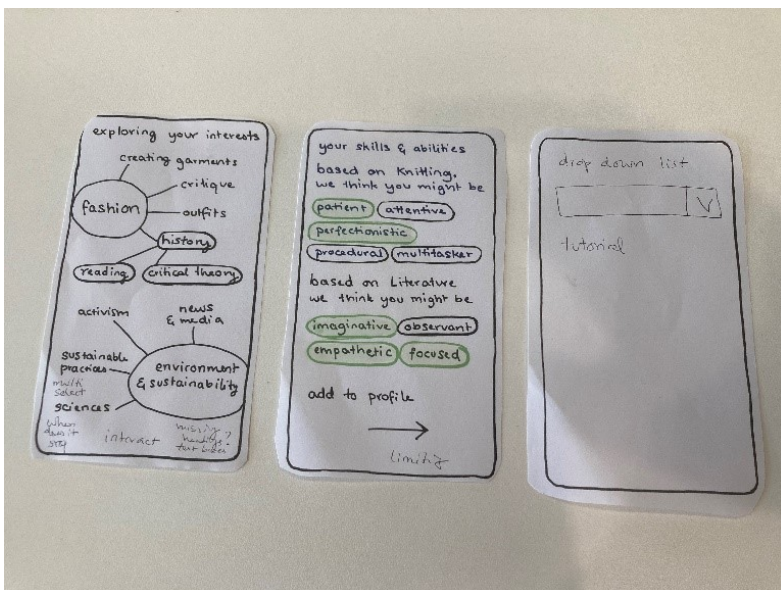 exploring your interests
creating garments
critique
fashion
outfits
history
reading
critical theory
activism
news
& media
sustainable
practices
environment
& sustainability
multi
select
sciences
when
does it
stop
interact
missing
headings?
text boxes
your skills & abilities
based on Knitting,
we think you might be
patient attentive
perfectionistic
procedural multitasker
based on Literature
we think you might be
imaginative observant
empathetic focused
add to profile
limiting
drop down list
tutorial